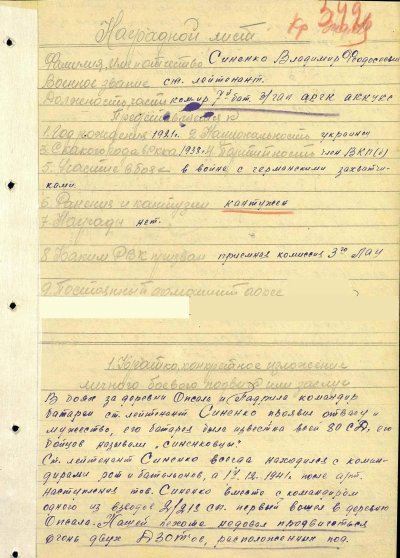 Наградной лист
Кр Знамя
Фамилия, имя, отчество Синенко Владимир Федосеевич
Военное звание ст. лейтенант.
Должность, часть ком-ир 7й бат. 3/гап аргк
Представляется к
1. Год рождения 1921г. 2. Национальность украинец
3. С какого года в РККА 1938 4. Партийность член ВКП(б)
5. Участие в боях в войне с германскими захватчи-
ками.
6. Ранения и контузии кантужен
7. Награды нет.
8. Каким РВК призван приемная комиссия 3го ЛАУ
9. Постоянный домашний адрес
1. Краткое, конкретное изложение
личного боевого подвига или заслуг
В боях за деревни Опсала и командир
батареи ст. лейтенант Синенко проявил отвагу и
мужество, его батарея была известна всей 80 СД, его
бойцов называли "синенковцы".
Ст. лейтенант Синенко всегда находился с коман-
дирами рот и батальонов, а 17.12.1941г. после арт.
наступления тов. Синенко вместе с командиром
одного из взводов 2/218 сп. первый вошел в деревню
Опсала. Нашей пехоте мешал продвигаться
огонь двух ДЗОТ'ов, расположенных под